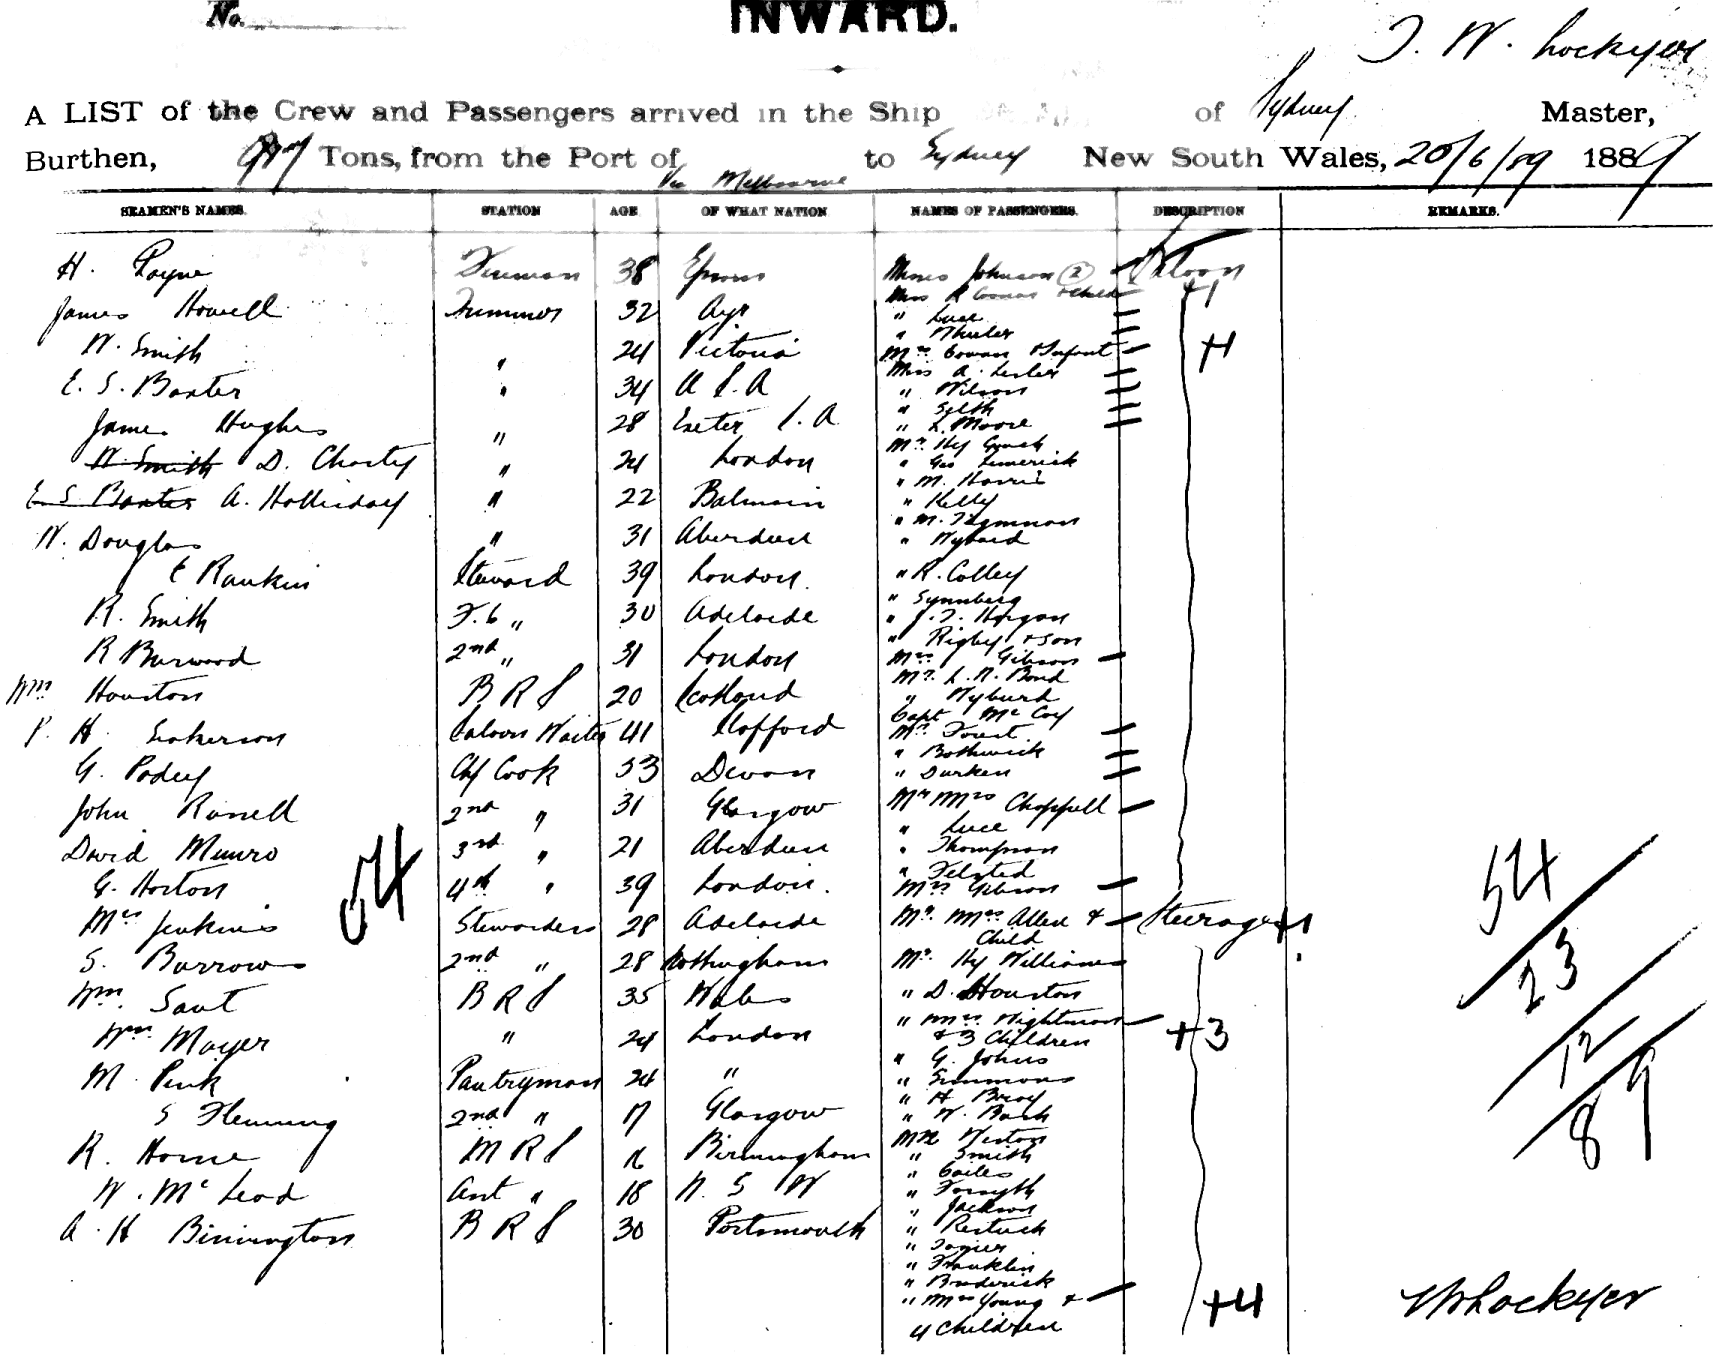 No.
INWARD.
T. W. Lockyer
A LIST of the Crew and Passengers arrived in the Ship of Sydney Master,
Burthen, Tons, from the Port of to Sydney New South Wales, 20/6/89 1889
Via Melbourne
SEAMEN'S NAMES. STATION AGE OF WHAT NATION NAMES OF PASSENGERS. DESCRIPTION REMARKS.
H. Payne 38 Misses Johnson (2) Saloon
Miss Cowan & Child +1
James Howell Trimmer 32 Ayr " Luce
" Wheeler
W. Smith " 24 Victoria Mrs Cowan & Infant +1
Miss A. Lesler
E. S. Baxter " 34 U S A " Wilson
" Selth
James Hughes " 28 Exeter S. A " L. Moore
Mr. Hy Gouch
W Smith D. Charty " 24 London " Geo Limerick
" M. Harris
E S Baxter A. Holliday " 22 Balmain " Kelly
W. Douglas " 31 Aberdeen " Wybard
E Rankin Steward 39 London. " R. Colley
" Synnberg
R. Smith F. C " 30 Adelaide " J. T. Horgan
" Rigby & son
R Burwood 2nd " 31 London Mrs Gibson
Mr. L. N. Bond
Wm Houston B R S 20 Scotland " Wyburd
Capt Mc Coy
P. H. Saloon Waiter 41 Mr Forest
" Bothwick
G. Podey Chf Cook 53 Devon " Durken
John Russell 2nd " 31 Glasgow Mr Mrs Chappell
" Luce
David Munro 3rd " 21 Aberdeen " Thompson
" Felsted
G. Horton 4th " 39 London. Mrs Gibson
54
Mrs Jenkins Stewardess 28 Adelaide Mr. Mrs Allen & Steerage +1
Child
S. Barrow 2nd " 28 Nottingham Mr. Hy Williams
Wm. Saut B R S 35 Wales " D. Houston
" Mrs Wightman
Wm Mayer " 24 London & 3 Children +3
" G. Johns
M. Pink Pantryman 24 " " Simmons
" H Bray
S Flemming 2nd " 17 Glasgow " W. Bash
R. Horne M R S 16 Birmingham Weston
" Smith
" Coiles
W. Mc Leod Asst " 18 N. S W " Forsyth
" Jackson
A. H Binnington B R S 30 Portsmouth
" Franklin
" Broderick
" Mrs Young & +4
4 Children
54
23
12
89
Lockyer